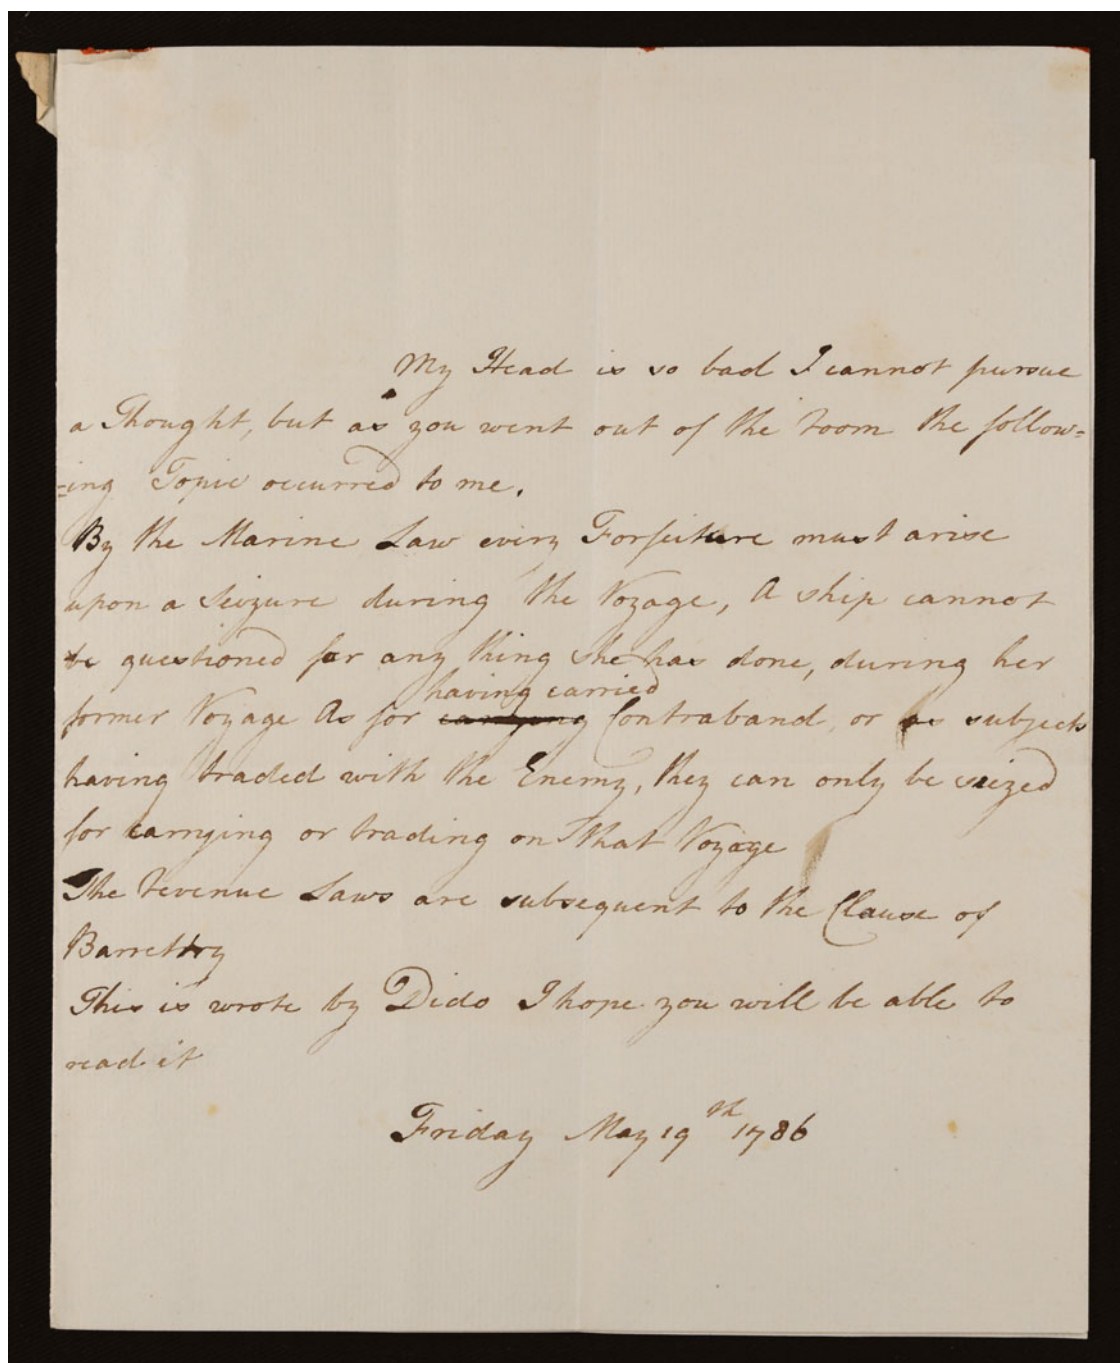 My Head is so bad I cannot pursue
a Thought, but as you went out of the room the follow=
=ing Topic occurred to me.
By the Marine Law every Forfeiture must arise
upon a Seizure during the Voyage, A ship cannot
be questioned for any thing she has done, during her
having carried
former Voyage As for carrying Contraband, or as subjects
having traded with the Enemy, they can only be seized
for carrying or trading on that Voyage
The revenue Laws are subsequent to the Clause of
Barrettry
This is wrote by Dido I hope you will be able to
read it
Friday May 19th 1786